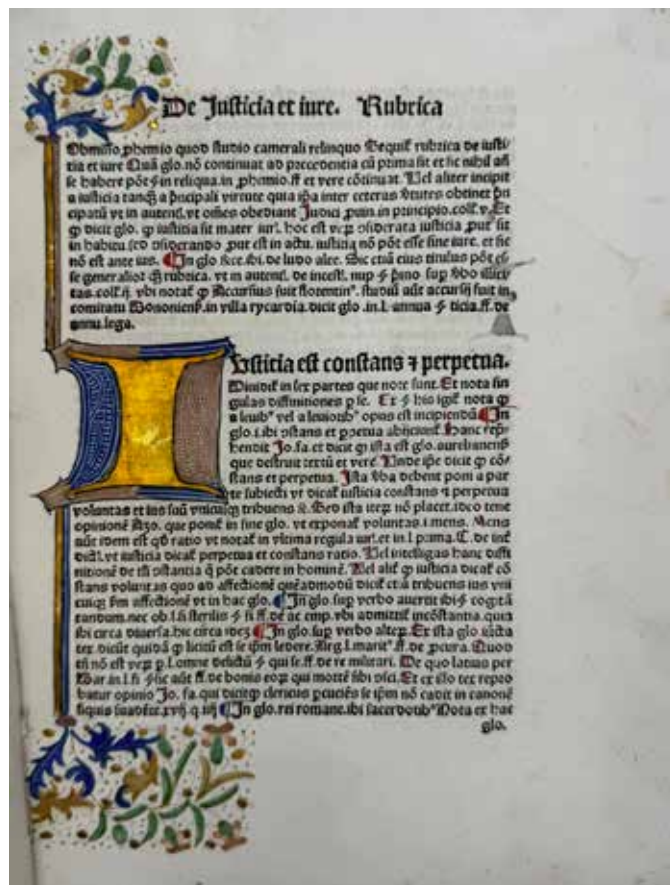 De Justicia et iure. Rubrica
Obmisso ꝓhemio quod studio camerali relinquo Sequit᷑ rubrica de iusti
tia et iure Quā glo. nō continuat ad p̄cedentia cū prima sit et sic nihil añ
se habere pōt in reliqua. in ꝓhemio. ff et vere cōtinuat. Uel aliter incipit
a iusticia tanq̄ a p̄ncipali virtute quia ip̄a inter ceteras v̓tutes obtinet p̄n
cipatū vt in autenꝭ. vt om̄es obediant Judici in principio. coll. v. Et
ꝙ dicit glo. ꝙ iusticia sit mater iur. hoc est veꝝ iusticia ꝓut sit
in habitu. sed ꝓut est in actu. iusticia nō pōt esse sine iure. et sic
nō est ante ius. In glo ibi. de ludo alee. Sic etiā eius titulus pōt eē
se generalior q̄ꝫ rubrica. vt in autenꝭ. de incest. nup sup illici
tas. coll. ij. vbi notat᷑ ꝙ Accursius fuit florentin⁹. studiū aūt accursij fuit in
comitatu Bononienꝭ. in villa rycardia. dicit glo. in. l. annua ticia. ff. de
annu. lega.
Usticia est constans ⁊ perpetua.
Diuidit᷑ in sex partes que note sunt. Et nota sin
gulas diffinitiones ꝑ se. Ex his igit᷑ nota ꝙ
a leuib⁹ vel a leuiorib⁹ opus est incipiendū In
glo. i. ibi ꝯstans et ꝑpetua Hanc rep̄
hendit Jo. fa. et dicit ꝙ ista est glo. aurelianenꝭ
que destruit textū et vere. Unde ip̄e dicit ꝙ cō
stans et perpetua. Ista v̓ba debent poni a par
te subiecti vt dicat᷑ iusticia constans ⁊ perpetua
voluntas et ius suū vnicuiq̄ꝫ tribuens Sed ista nō placet. ideo tene
opinionē Azo. que ponit᷑ in fine glo. vt exponat᷑ voluntas. i. mens. Mens
aūt idem est qd̄ ratio vt notat᷑ in vltima regula iur. et in. l. prima. C.
vt iusticia dicat᷑ perpetua et constans ratio. Uel intelligas hanc diffi
nitionē de ꝯstantia q̄ pōt cadere in hominē. Uel alit̓ ꝙ iusticia dicat᷑ cō
stans voluntas quo ad affectionē quēadmodū dicit᷑ etiā tribuens ius vni
cuiqꝫ affectionē vt in hac glo. In glo. sup verbo auerut ibi cogitā
tandum. nec ob. l. si sterilis si ff. de ac emp. vbi admittit᷑ incōstantia. quia
ibi circa diuersa. hic circa idem In glo. sup verbo alteꝝ. Ex ista glo. iūcta
tex. dicūt quidā ꝙ licitū est se ip̄m ledere. Arg. l. marit⁹. ff. de ꝓcura. Quod
tn̄ nō est veꝝ ꝑ. l. omne delictū qui se. ff. de re militari. De quo latius per
Bar. in. l. fi aūt ff. de bonis eoꝝ qui mortē sibi Et ex illo tex repro
batur opinio Jo. fa. qui dicit ꝙ clericus ꝑcutiēs se ip̄m nō cadit in canonē
siquis suadēte. xvij. q. iiij In glo. rei romane. ibi sacerdotib⁹ Nota ex hac
glo.